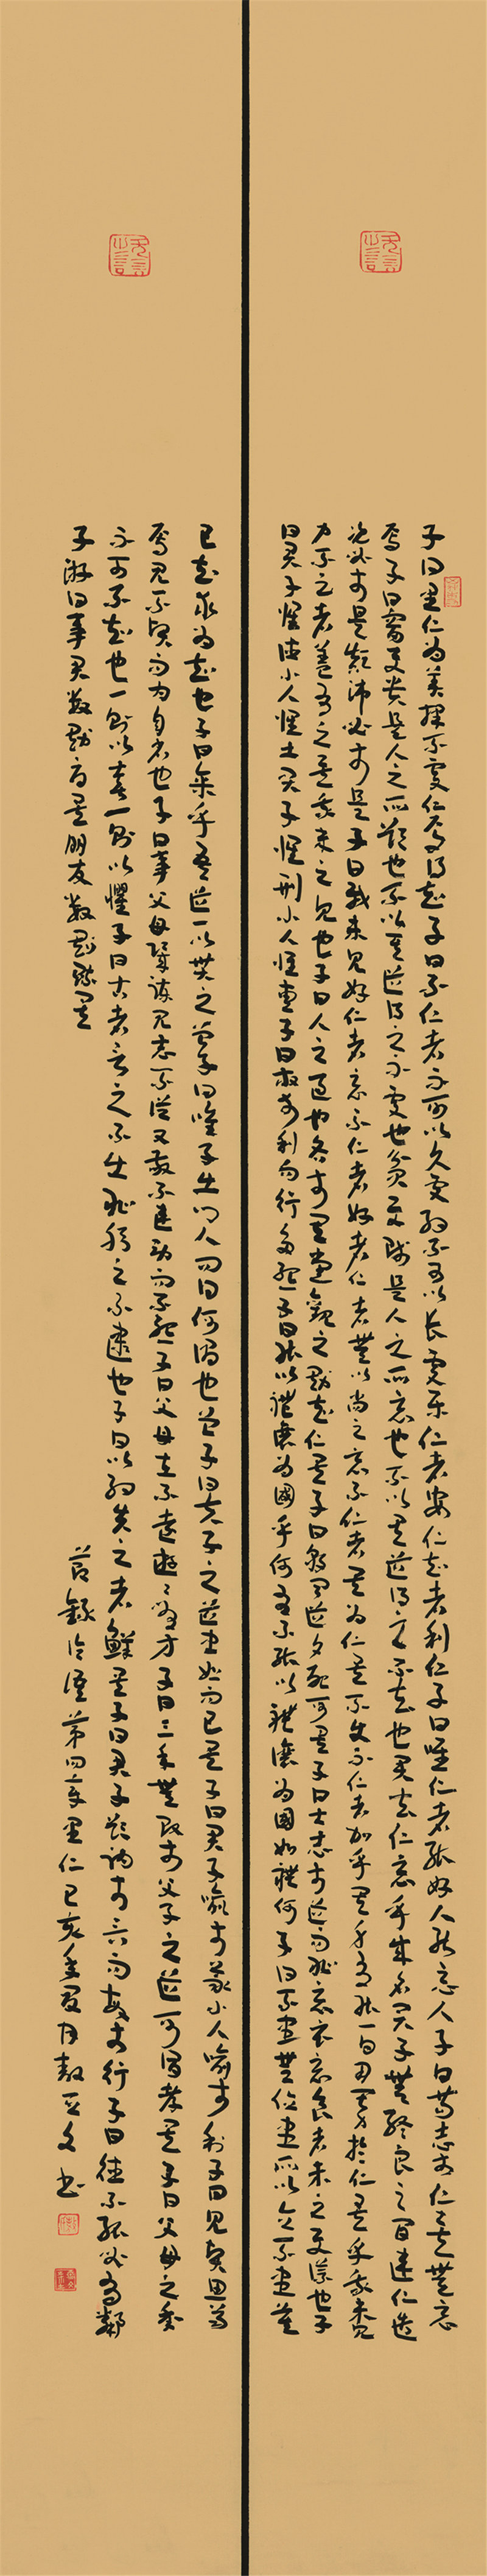 子曰里仁為美擇不處仁焉得知子曰不仁者不可以久處約不可以長處樂仁者安仁知者利仁子曰唯仁者能好人能惡人子曰苟志於仁矣無惡
子曰富與貴是人之所欲也不以其道得之不處也貧與賤是人之所惡也不以其道得之不去也君子去仁惡乎成名君子無終食之間違仁造
次必於是顛沛必於是子曰我未見好仁者惡不仁者好仁者無以尚之惡不仁者其為仁矣不使不仁者加乎其身有能一日用其力於仁矣乎我未見
力不足者蓋有之矣我未之見也子曰人之過也各於其黨觀過斯知仁矣子曰朝聞道夕死可矣子曰士志於道而恥惡衣惡食者未足與議也子
曰君子懷德小人懷土君子懷刑小人懷惠子曰放於利而行多怨子曰能以禮讓為國乎何有不能以禮讓為國如禮何子曰不患無位患所以立不患莫
己知求為知也子曰參乎吾道一以貫之曾子曰唯子出門人問曰何謂也曾子曰夫子之道忠恕而已矣子曰君子喻於義小人喻於利子曰見賢思齊
焉見不賢而內自省也子曰事父母幾諫見志不從又敬不違勞而不怨子曰父母在不遠遊遊必有方子曰三年無改於父子之道可謂孝矣子曰父母之年
不可不知也一則以喜一則以懼子曰古者言之不出恥躬之不逮也子曰以約失之者鮮矣子曰君子欲訥於言而敏於行子曰德不孤必有鄰
子游曰事君數斯辱矣朋友數斯疏矣
節錄論語第四章里仁己亥年夏月